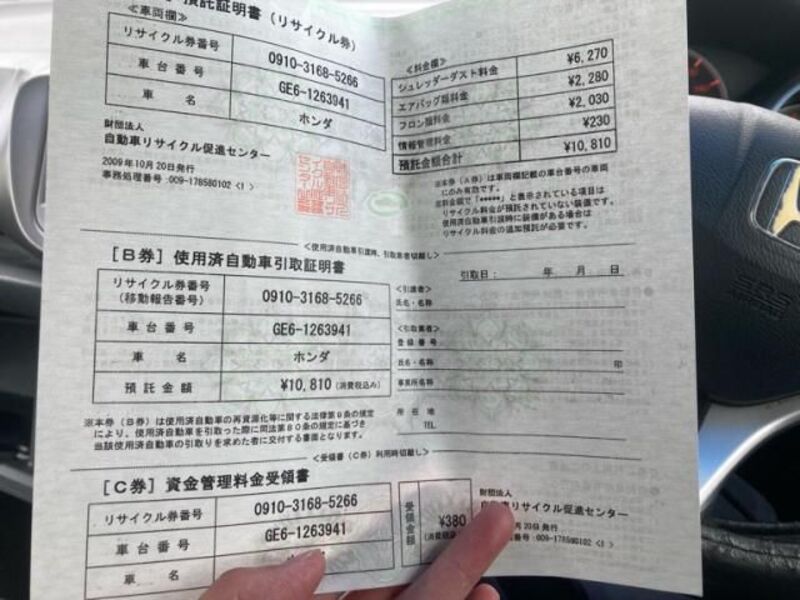 預託証明書(リサイクル券)
<車両欄>
リサイクル券番号 0910-3168-5266
車台番号 GE6-1263941
車名 ホンダ
財団法人
自動車リサイクル促進センター
2009年10月20日発行
事務処理番号:009-178580102 <1>
<料金欄>
シュレッダーダスト料金 ¥6,270
エアバッグ類料金 ¥2,280
フロン類料金 ¥2,030
情報管理料金 ¥230
預託金額合計 ¥10,810
※本券(A券)は車両欄記載の車台番号の車両
にのみ有効です。
※料金欄で「*****」と表示されている項目は
リサイクル料金が預託されていない装備です。
使用済自動車引渡時に装備がある場合は
リサイクル料金の追加預託が必要です。
<使用済自動車引渡時、引取業者切離し>
[B券]使用済自動車引取証明書
リサイクル券番号
(移動報告番号) 0910-3168-5266
車台番号 GE6-1263941
車名 ホンダ
預託金額 ¥10,810 (消費税込み)
※本券(B券)は使用済自動車の再資源化等に関する法律第9条の規定
により、使用済自動車を引取った際に同法第80条の規定に基づき
当該使用済自動車の引取りを求めた者に交付する書面となります。
引取日: 年 月 日
<引渡者>
氏名・名称
<引取業者>
登録番号
氏名・名称 印
事業所名称
所在地
TEL
<受領書(C券)利用時切離し>
[C券]資金管理料金受領書
リサイクル券番号 0910-3168-5266
車台番号 GE6-1263941
車名
受領金額 ¥380
財団法人
自動車リサイクル促進センター
月20日発行
:009-178580102 <1>